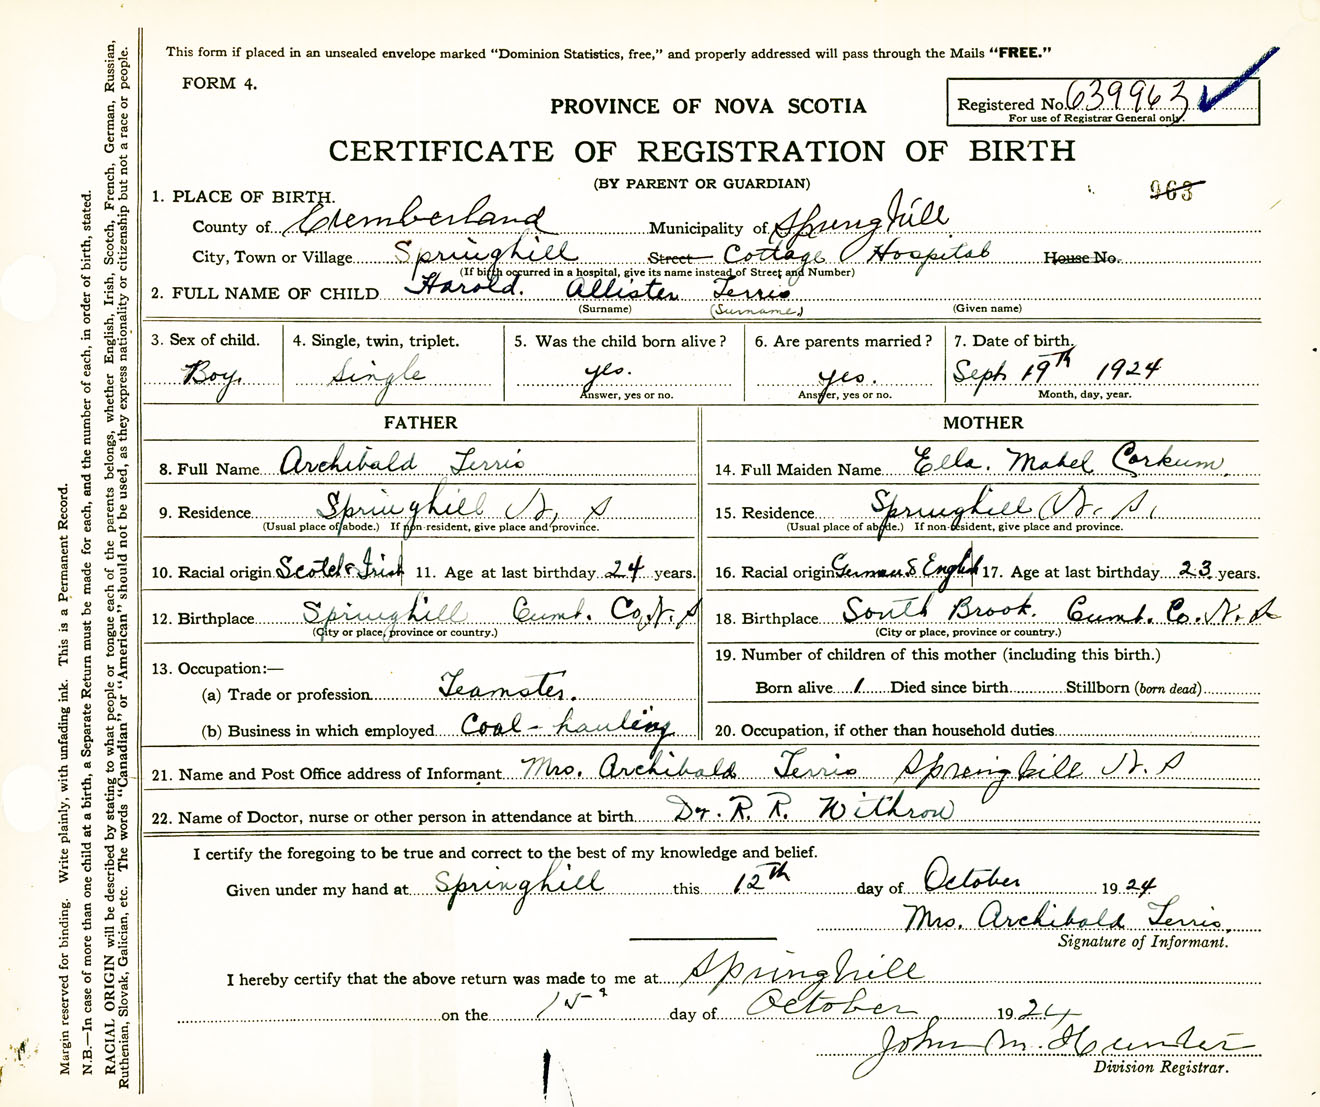 This form if placed in an unsealed envelope marked "Dominion Statistics, free," and properly addressed will pass through the Mails "FREE."
FORM 4.
Registered No. 639963
For use of Registrar General only.
PROVINCE OF NOVA SCOTIA
CERTIFICATE OF REGISTRATION OF BIRTH
(BY PARENT OR GUARDIAN)
963
1. PLACE OF BIRTH.
County of Cumberland Municipality of Springhill
City, Town or Village Springhill Street Cottage Hospital House No.
(If birth occurred in a hospital, give its name instead of Street and Number)
2. FULL NAME OF CHILD Harold. Allister Terris
(Surname) (Surname) (Given name)
3. Sex of child. 4. Single, twin, triplet. 5. Was the child born alive? 6. Are parents married? 7. Date of birth.
Boy. Single yes. yes. Sept 19th 1924
Answer, yes or no. Answer, yes or no. Month, day, year.
FATHER MOTHER
8. Full Name Archibald Terris 14. Full Maiden Name Ella. Mabel Corkum.
9. Residence Springhill N. S 15. Residence Springhill N. S.
(Usual place of abode.) If non-resident, give place and province. (Usual place of abode.) If non-resident, give place and province.
10. Racial origin Scotch & Irish 11. Age at last birthday 24 years. 16. Racial origin German & English 17. Age at last birthday 23 years.
12. Birthplace Springhill Cumb. Co. N. S 18. Birthplace South Brook. Cumb. Co. N. S
(City or place, province or country.) (City or place, province or country.)
13. Occupation:— 19. Number of children of this mother (including this birth.)
(a) Trade or profession Teamster. Born alive 1 Died since birth Stillborn (born dead)
(b) Business in which employed Coal - hauling 20. Occupation, if other than household duties
21. Name and Post Office address of Informant Mrs. Archibald Terris Springhill N. S
22. Name of Doctor, nurse or other person in attendance at birth Dr. R. R. Withrow
I certify the foregoing to be true and correct to the best of my knowledge and belief.
Given under my hand at Springhill this 12th day of October 1924
Mrs. Archibald Terris.
Signature of Informant.
I hereby certify that the above return was made to me at Springhill
on the 15 day of October 1924
John M. Hunter
Division Registrar.
Margin reserved for binding. Write plainly, with unfading ink. This is a Permanent Record.
N.B.—In case of more than one child at a birth, a Separate Return must be made for each, and the number of each, in order of birth, stated.
RACIAL ORIGIN will be described by stating to what people or tongue each of the parents belongs, whether English, Irish, Scotch, French, German, Russian,
Ruthenian, Slovak, Galician, etc. The words "Canadian" or "American" should not be used, as they express nationality or citizenship but not a race or people.